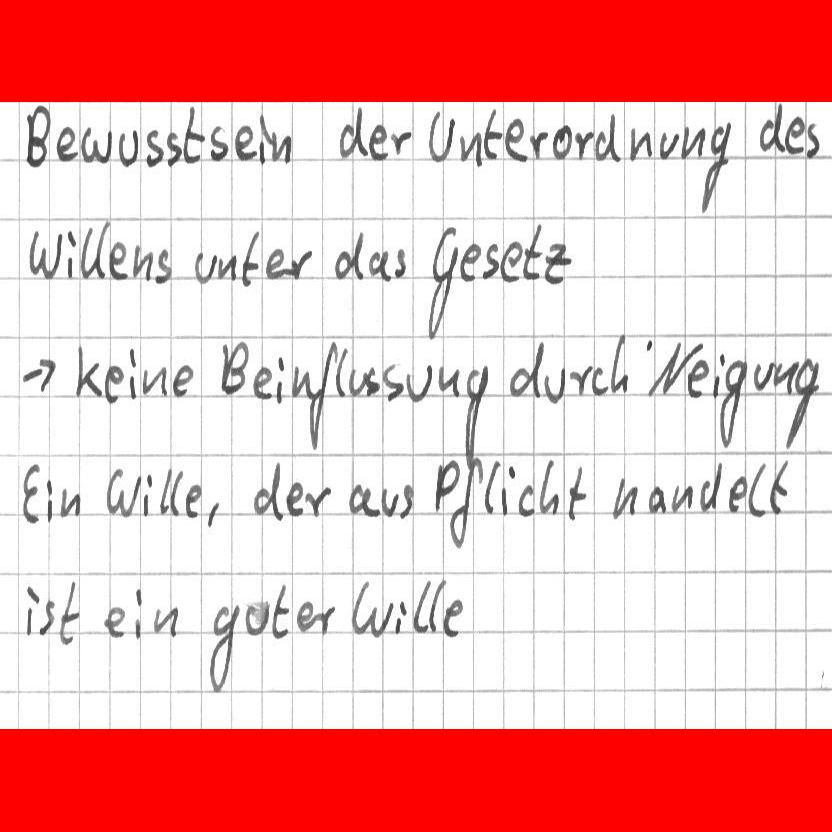 Bewusstsein der Unterordnung des
Willens unter das Gesetz
→ keine Beinflussung durch Neigung
Ein Wille, der aus Pflicht handelt
ist ein guter Wille